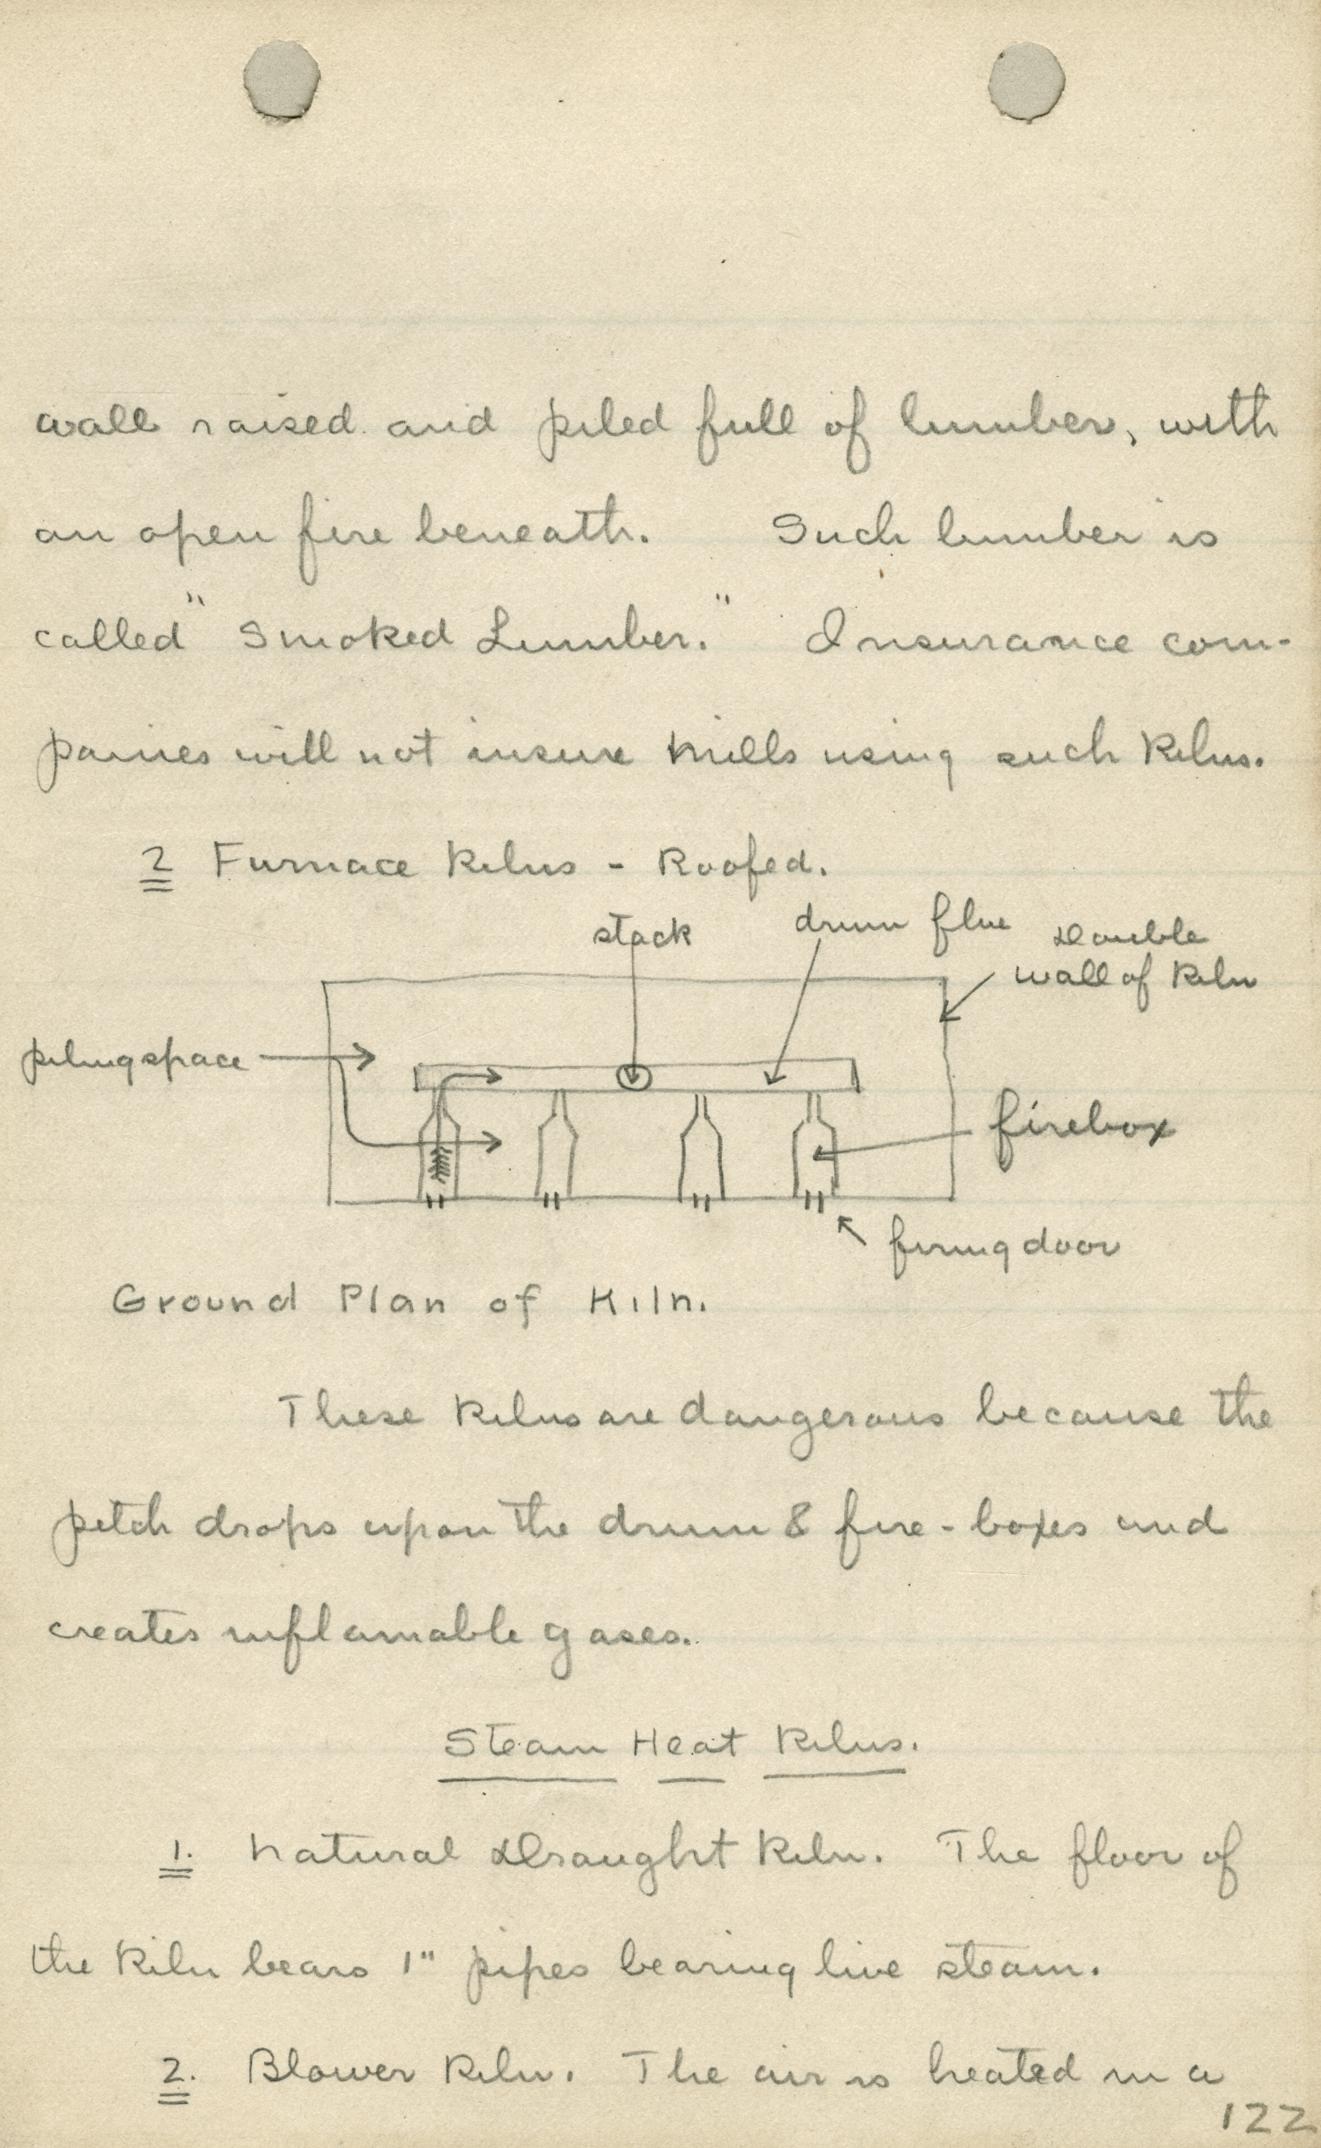 wall raised and piled full of lumber, with
an open fire beneath. Such lumber is
called "Smoked Lumber." Insurance com-
panies will not insure mills using such kilns.
2 Furnace Kilns - Roofed.
stack
drum flue
Double
wall of kiln
piling space
firebox
firing door
Ground Plan of Kiln.
These kilns are dangerous because the
pitch drops upon the drum & fire-boxes and
creates inflamable gases.
Steam Heat Kilns.
1. Natural Draught Kiln. The floor of
the kiln bears 1" pipes bearing live steam.
2. Blower Kiln. The air is heated in a
122